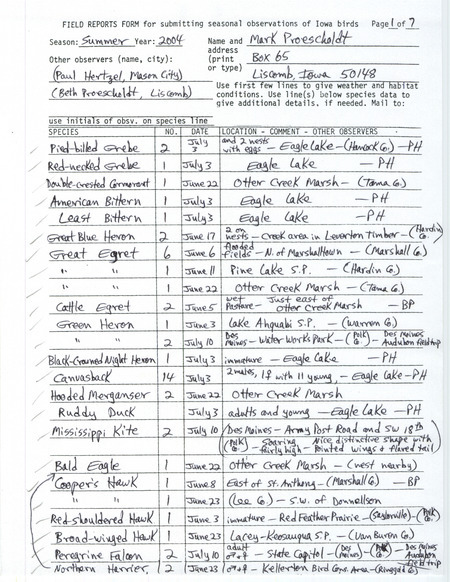 FIELD REPORTS FORM for submitting seasonal observations of Iowa birds Page 1 of 7
Season: Summer Year: 2004 Name and Mark Proescholdt
address
Other observers (name, city): (print Box 65
or type)
(Paul Hertzel, Mason City) Liscomb, Iowa 50148
(Beth Proescholdt, Liscomb) Use first few lines to give weather and habitat
conditions. Use line(s) below species data to
give additional details. if needed. Mail to:
use initials of obsv. on species line
SPECIES NO. DATE LOCATION - COMMENT - OTHER OBSERVERS
Pied-billed Grebe 2 July 3 and 2 nests with eggs - Eagle Lake - (Hancock Co.) - PH
Red-necked Grebe 1 July 3 Eagle Lake - PH
Double-crested Cormorant 1 June 22 Otter Creek Marsh - (Tama Co.)
American Bittern 1 July 3 Eagle Lake - PH
Least Bittern 1 July 3 Eagle Lake - PH
Great Blue Heron 2 June 17 2 on nests - Creek area in Leverton Timber - (Hardin Co.
Great Egret 6 June 6 flooded fields - N. of Marshalltown - (Marshall Co.)
" " 1 June 11 Pine Lake S.P. - (Hardin Co.)
" " 1 June 22 Otter Creek Marsh - (Tama Co.)
Cattle Egret 2 June 5 wet Pasture - Just east of Otter Creek Marsh - BP
Green Heron 1 June 3 Lake Ahquabi S.P. - (Warren Co.)
" " 2 July 10 Des Moines - Water Works Park - (Polk Co.) - Des Moines Audubon field trip
Black-Crowned Night Heron 1 July 3 immature - Eagle Lake - PH
Canvasback 14 July 3 2 males, 1 f with 11 young, - Eagle Lake - PH
Hooded Merganser 2 June 22 Otter Creek Marsh
Ruddy Duck July 3 adults and young - Eagle Lake - PH
Mississippi Kite 2 July 10 Des Moines - Army Post Road and SW 18th
(Polk Co.) - Soaring fairly high - Nice distinctive shape with Pointed wings & flared tail
Bald Eagle 1 June 22 Otter Creek Marsh - (nest nearby)
Cooper's Hawk 1 June 8 East of St. Anthony - (Marshall Co.) - BP
" " 1 June 23 (Lee Co.) - S.W. of Donnellson
Red-shouldered Hawk 1 June 3 immature - Red Feather Prairie - (Saylorville) - (Polk Co.)
Broad-winged Hawk 1 June 23 Lacey-Keosauqua S.P. - (Van Buren Co.)
Peregrine Falcon 2 July 10 adult - State Capitol - (Des Moines) (Polk Co.) - Des Moines Audubon field trip
Northern Harrier, 2 June 23 - Kellerton Bird Cons. Area - (Ringgold Co.)